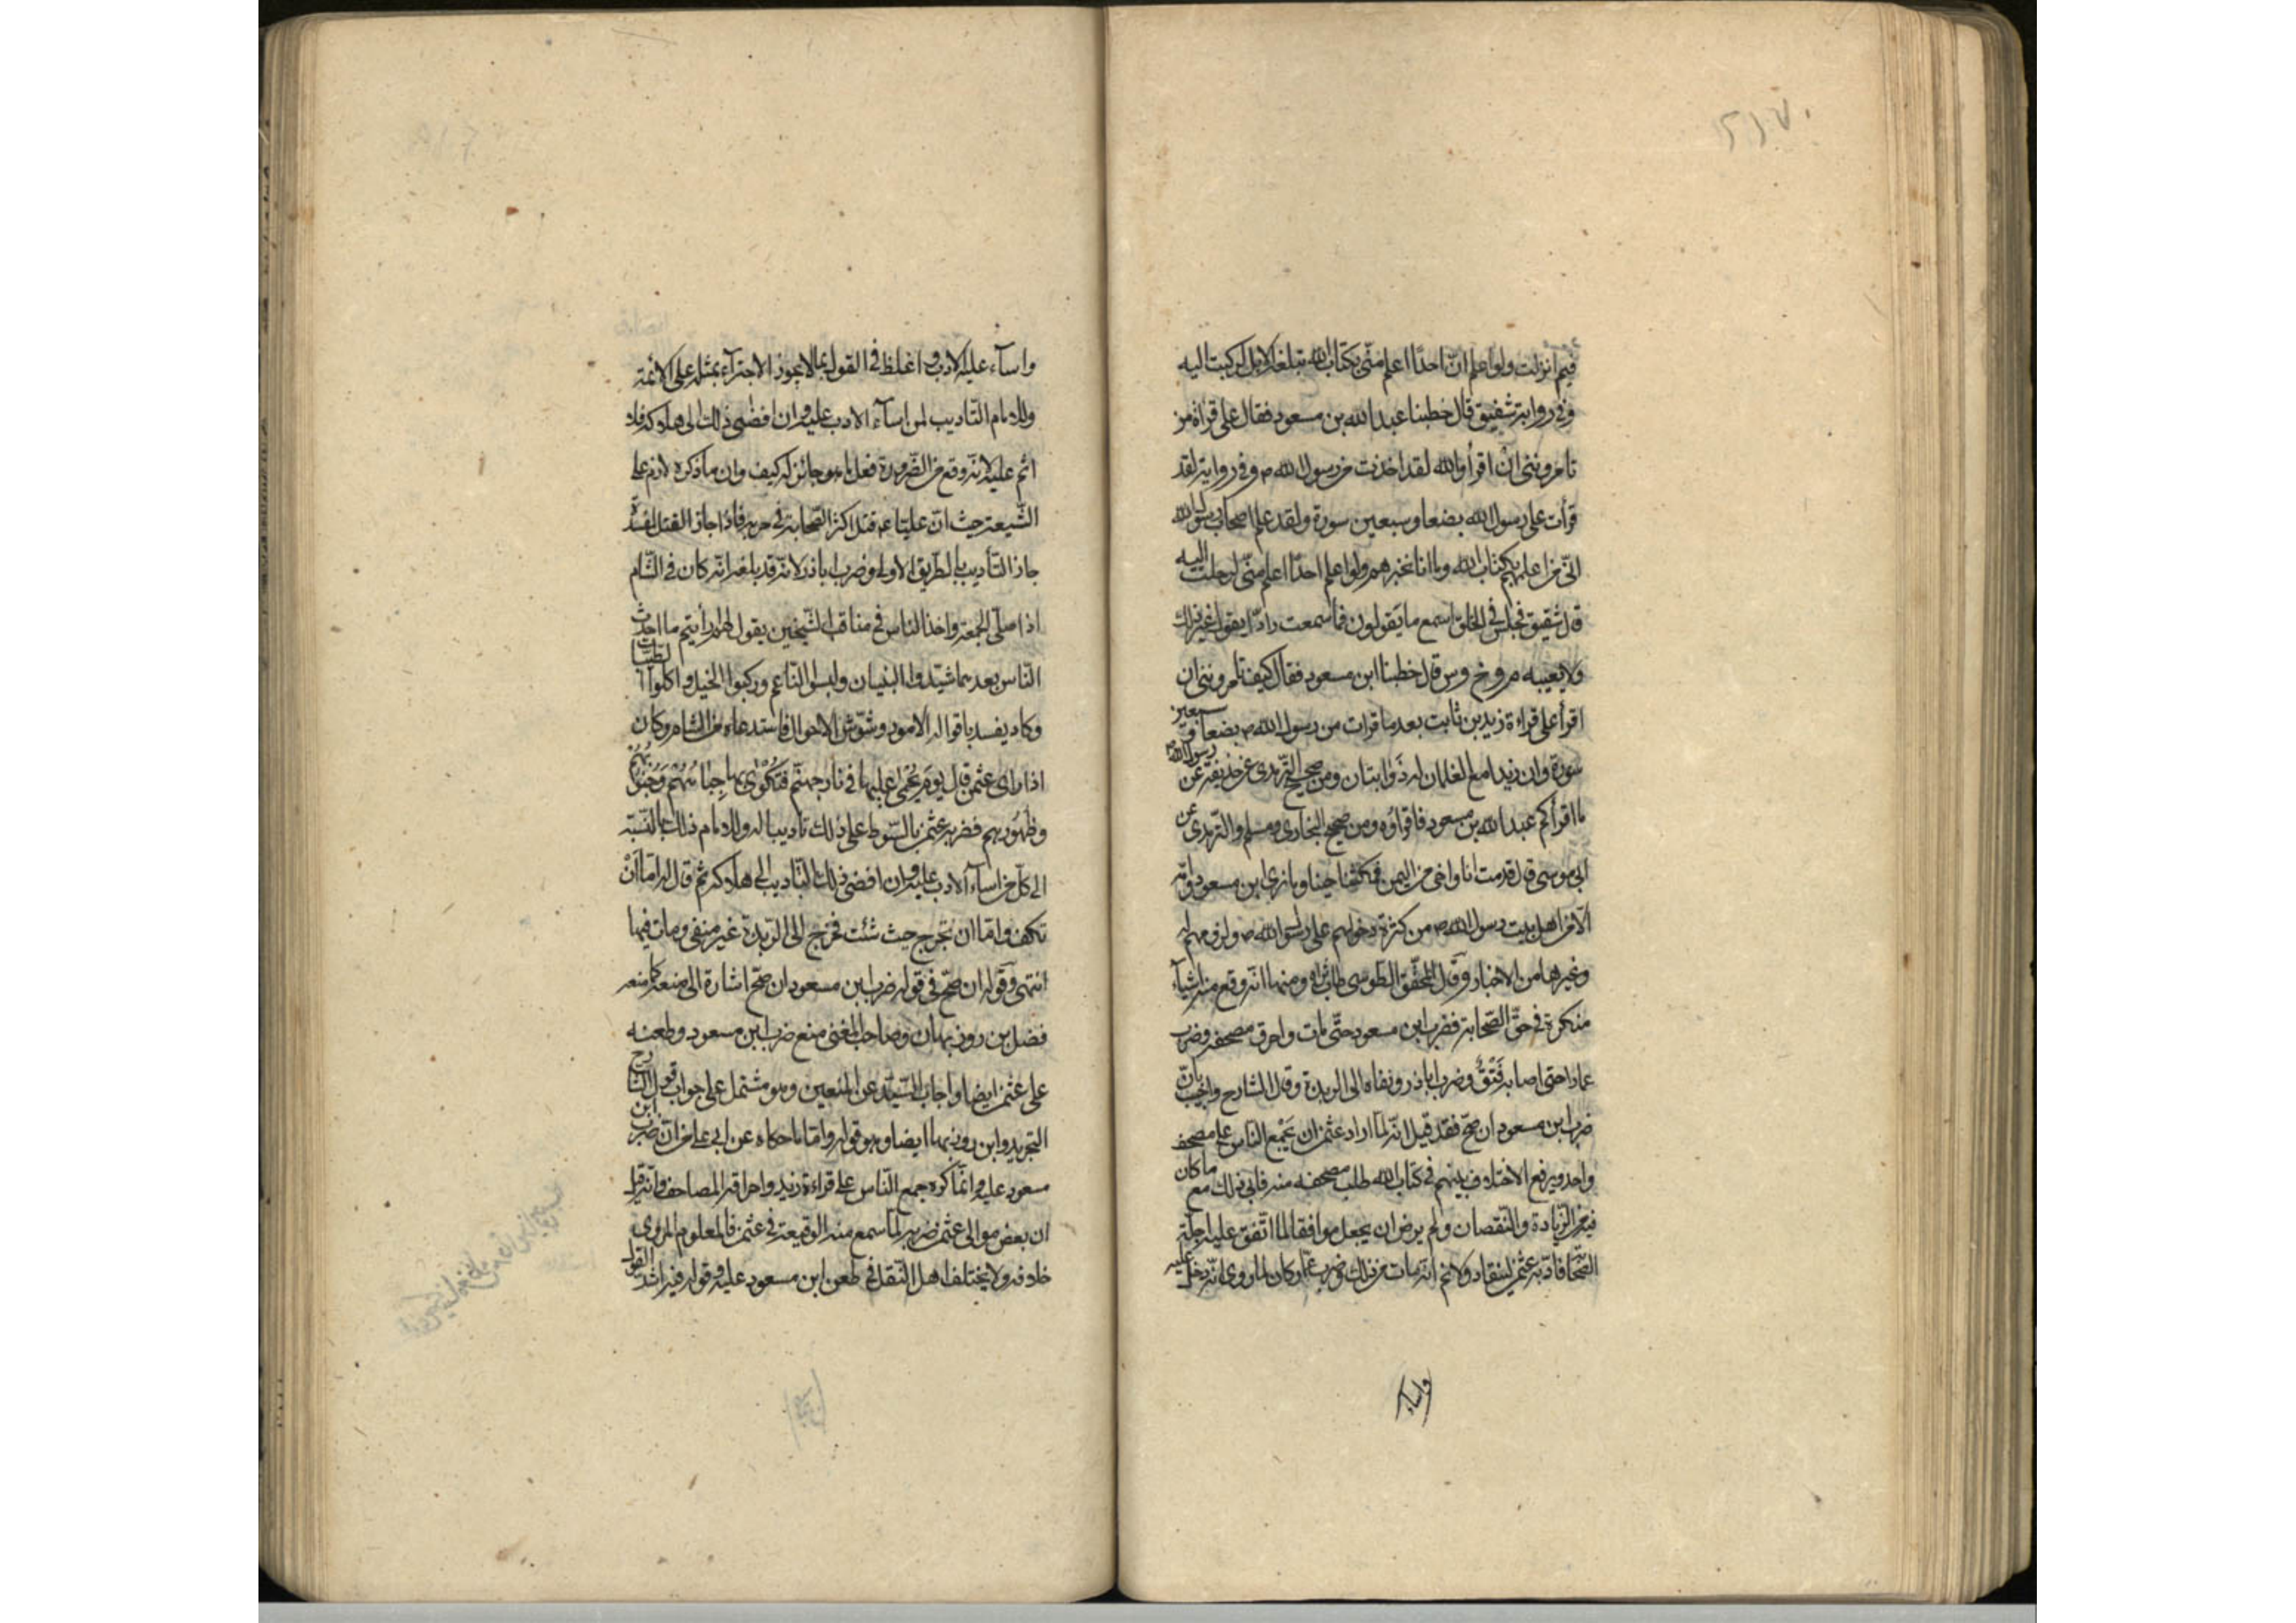 فيم انزلت ولو اعلم ان احدا اعلم منّي بكتاب الله تبلغه الابل لركبت اليه
وفي رواية شقيق قال خطبنا عبد الله بن مسعود فقال على قراءة من
تامرونني ان اقرأ والله لقد اخذت من رسول الله ص وفي رواية لقد
قرأت على رسول الله بضعا وسبعين سورة ولقد علم اصحاب رسول الله
انّي من اعلمهم بكتاب الله وما انا بخيرهم ولو اعلم احدا اعلم منّي لرحلت اليه
قال شقيق فجلس في الحلق اسمع ما يقولون فما سمعت رادّا يقول غير ذلك
ولا يعيبه م و خ و س قال خطبنا ابن مسعود فقال كيف تامرونني ان
اقرأ على قراءة زيد بن ثابت بعد ما قرات من رسول الله ص بضعا و سبعين
سورة وان زيدا مع الغلمان له ذؤابتان ومن صحيح الترمذي عن حذيفة عن رسول الله ص
ما اقرأكم عبد الله بن مسعود فاقرؤه ومن صحيح البخاري ومسلم والترمذي عن
ابي موسى قال قدمت انا واخي من اليمن فمكثنا حينا وما نرى ابن مسعود وامّه
الّا من اهل بيت رسول الله ص من كثرة دخولهم على رسول الله ص ولزومهم له
وغيرها من الاخبار وقال المحقّق الطوسي طاب ثراه ومنها انّه وقع منه اشياء
منكرة في حقّ الصحابة فضرب ابن مسعود حتّى مات واحرق مصحفه وضرب
عمارا حتى اصابه فَتْقٌ وضرب اباذر ونفاه الى الربذة وقال الشارح واجيب بانّ
ضرب ابن مسعود ان صحّ فقد قيل انّه لمّا اراد عثمن ان يجمع الناس على مصحف
واحد ويرفع الاختلاف بينهم في كتاب الله طلب مصحفه منه فابى ذلك مع ما كان
فيه من الزيادة والنقصان ولم يرض ان يجعل موافقا لما اتّفق عليه اجلّة
الصحابة فادّبه عثمن لينقاد ولا نم انّه مات من ذلك وضرب عمار كان لما روي انّه دخل عليه
واساء
واساء عليه الادب و اغلظ في القول بما لا يجوز الاجتراء بمثله على الائمة
وللامام التاديب لمن اساء الادب عليه وان افضى ذلك الى هلاكه فلا
اثم عليه لانّه وقع من الضرورة فعل ما هو جائز له كيف وان ما ذكره لازم على
الشّيعة حيث انّ عليّا ع قتل اكثر الصحابة في حربه فاذا جاز القتل لمفسدة
جاز التأديب بالطريق الاولى وضرب اباذر لانّه قد بلغه انّه كان في الشام
اذا صلّى الجمعة واخذ الناس في مناقب الشيخين يقول لهم لو رأيتم ما احدث
النّاس بعدهما شيّدوا البنيان ولبسوا النّاعم وركبوا الخيل واكلوا الطيّبات
وكاد يفسد باقواله الامور وشوّش الاحوال فاستدعاه من الشام وكان
اذا راى عثمن قال يوم يُحْمٰى عليها في نار جهنّم فتُكْوٰى بها جِباهُهُم وَجُنوُبُهُم
وظُهُورهم فضربه عثمن بالسّوط على ذلك تاديبا له وللامام ذلك بالنسبة
الى كلّ من اساء الادب عليه وان افضى ذلك التاديب الى هلاكه ثم قال له امّا أنْ
تكف وامّا ان تخرج حيث شئت فخرج الى الربذة غير منفي ومات فيها
انتهى وقوله ان صحّ في قوله ضرب ابن مسعود ان صحّ اشارة الى منعه كما منعه
فضل بن روزبهان وصاحب المغني منع ضرب ابن مسعود وطعنه
على عثمن ايضا واجاب السّيّد عن المنعين وهو مشتمل على جواب قول الشارح
التجريد وابن روزبهان ايضا وهو قوله وامّا ما حكاه عن ابي علي من انّ ضرب ابن
مسعود عليه وانّما كره جمع النّاس على قراءة زيد واحراقه المصاحف وانّه قيل
ان بعض موالي عثمن ضربه لما سمع منه الوقيعة في عثمن فالمعلوم المروي
خلافه ولا يختلف اهل النّقل في طعن ابن مسعود عليه وقوله فيه اشدّ القول